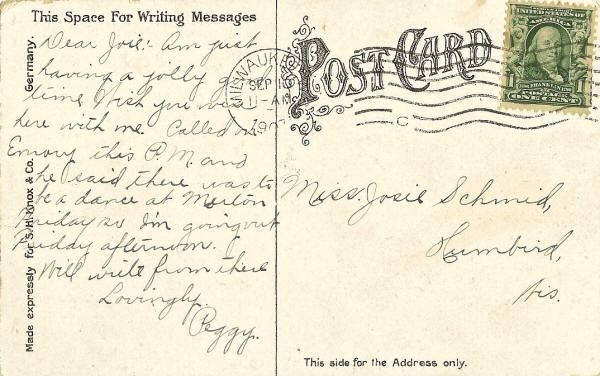 This Space For Writing Messages
Dear Josie:- Am just
having a jolly good
time. Wish you were
here with me. Called on
Emory this P.M. and
he said there was to
be a dance at Merton
Friday so I'm going out
Friday afternoon. I
Will write from there
Lovingly,
Peggy.
Made expressly for S.H. Knox & Co. Germany.
POST CARD
MILWAUKEE
SEP
11-AM
190
C
UNITED STATES OF AMERICA
FRANKLIN
1 ONE CENT 1
Miss. Josie Schmid,
Humbird,
Wis.
This side for the Address only.